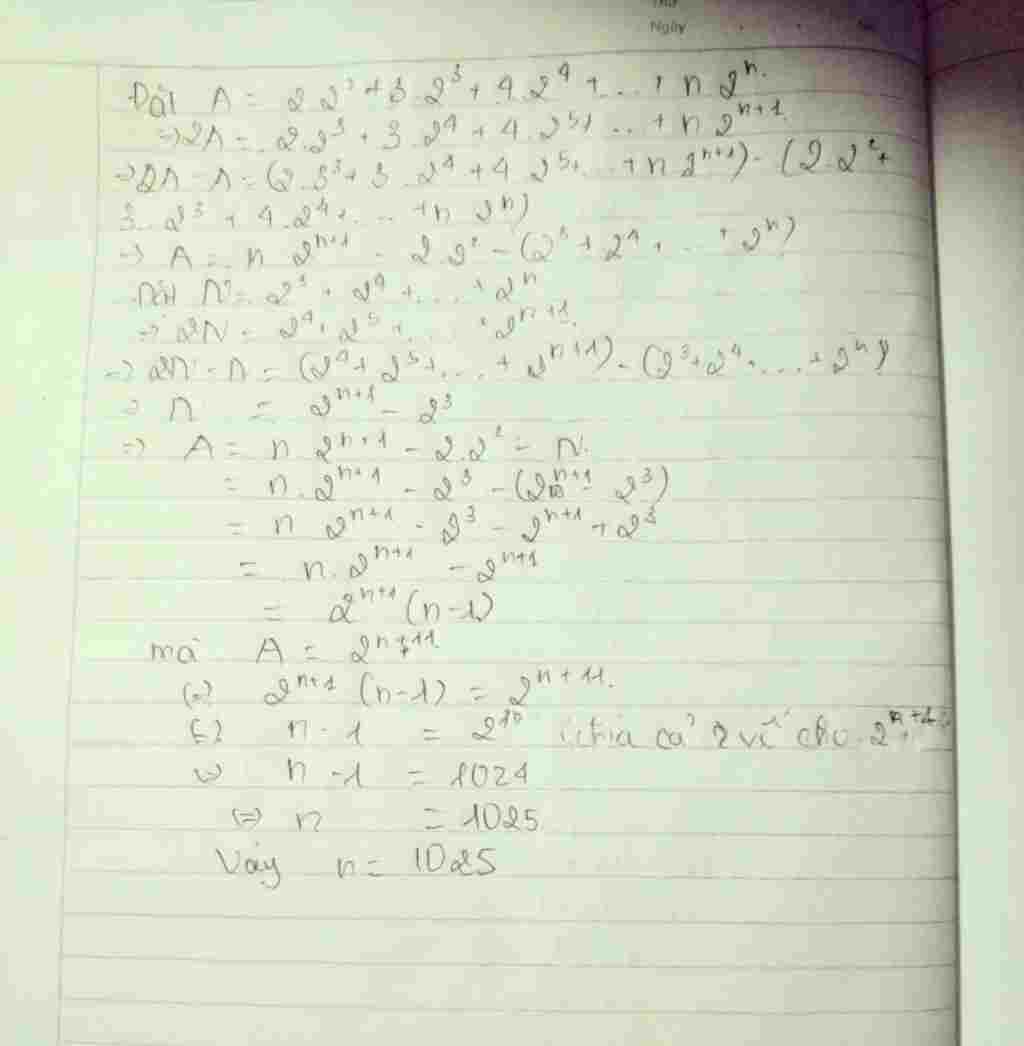 Thứ
Ngày
Đặt A = 2.2² + 3.2³ + 4.2⁴ + ... + n.2ⁿ.
⇒ 2A = 2.2³ + 3.2⁴ + 4.2⁵ + ... + n.2ⁿ⁺¹.
⇒ 2A - A = (2.3³ + 3.2⁴ + 4.2⁵ + ... + n.2ⁿ⁺¹) - (2.2² +
3.2³ + 4.2⁴ + ... + n.2ⁿ)
⇒ A = n.2ⁿ⁺¹ - 2.2² - (2³ + 2⁴ + ... + 2ⁿ)
Đặt N = 2³ + 2⁴ + ... + 2ⁿ
⇒ 2N = 2⁴ + 2⁵ + ... + 2ⁿ⁺¹.
⇒ 2N - N = (2⁴ + 2⁵ + ... + 2ⁿ⁺¹) - (2³ + 2⁴ + ... + 2ⁿ)
⇒ N = 2ⁿ⁺¹ - 2³
⇒ A = n.2ⁿ⁺¹ - 2.2² - N.
= n.2ⁿ⁺¹ - 2³ - (2ⁿ⁺¹ - 2³)
= n.2ⁿ⁺¹ - 2³ - 2ⁿ⁺¹ + 2³
= n.2ⁿ⁺¹ - 2ⁿ⁺¹
= 2ⁿ⁺¹ (n-1)
mà A = 2ⁿ⁺¹¹.
(=) 2ⁿ⁺¹ (n-1) = 2ⁿ⁺¹¹.
(=) n - 1 = 2¹⁰ (chia cả 2 vế cho 2ⁿ⁺¹)
(=) n - 1 = 1024
(=) n = 1025
Vậy n = 1025